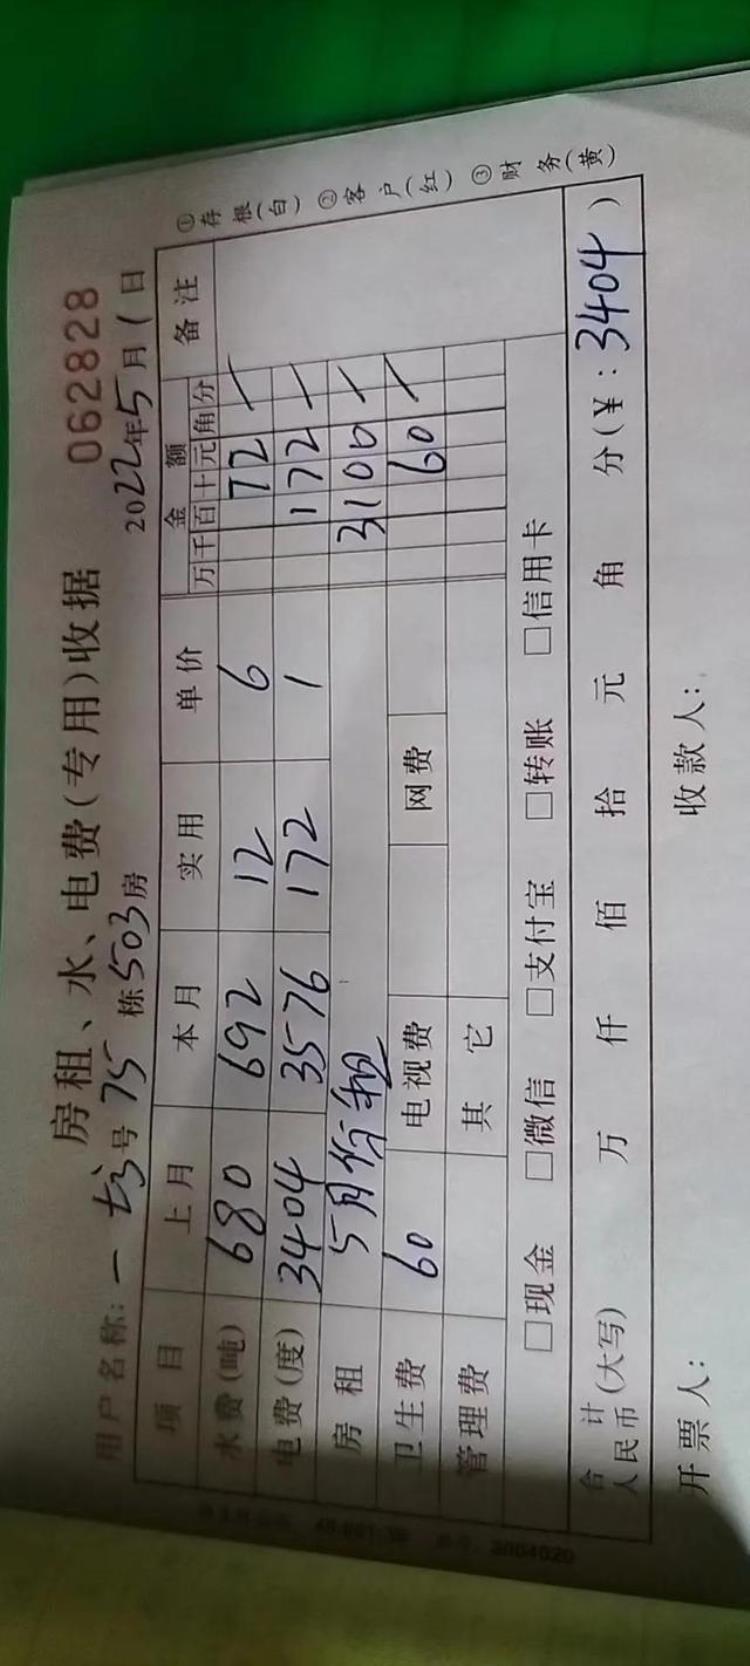 房租、水、电费(专用)收据 062828
用户名称: 一 号75栋503房 2022年5月1日
项目 上月 本月 实用 单价 金额 备注
万 千 百 十 元 角 分
水费(吨) 680 692 12 6 72
电费(度) 3404 3576 172 1 172
房租 5月份租 3100
卫生费 60 电视费 网费 60
管理费 其它
□现金 □微信 □支付宝 □转账 □信用卡
合计人民币(大写) 万 仟 佰 拾 元 角 分(¥:3404)
开票人: 收款人:
①存根(白) ②客户(红) ③财务(黄)